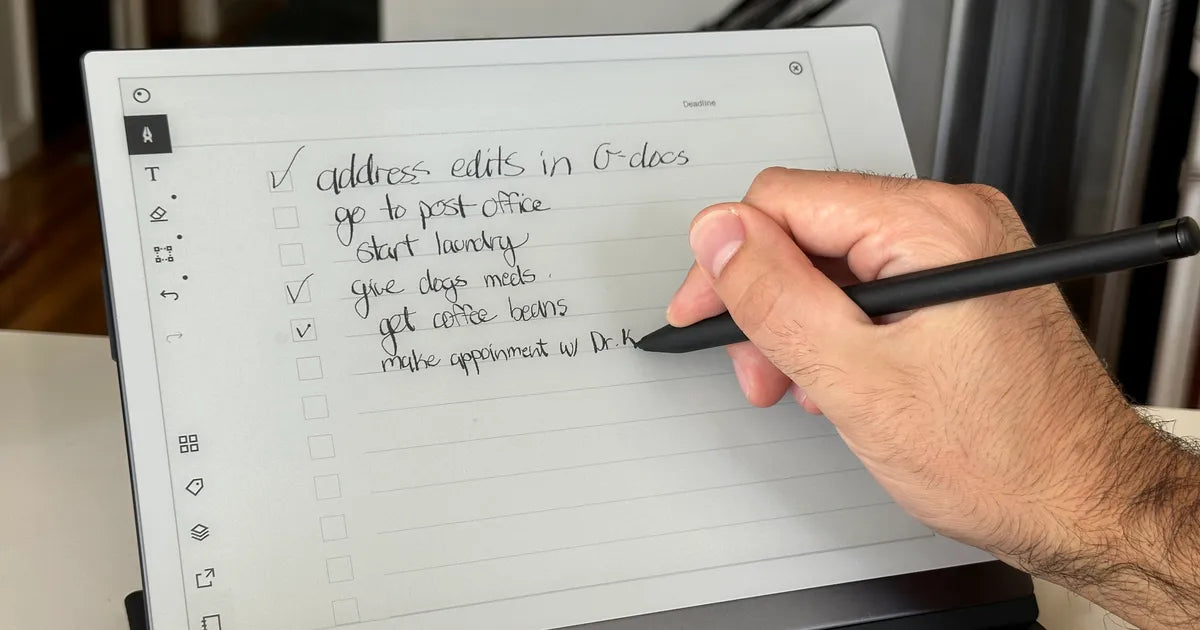 Deadline
T
✓ address edits in G-docs
go to post office
start laundry
✓ give dogs meds.
✓ get coffee beans
make appoinment w/ Dr. K